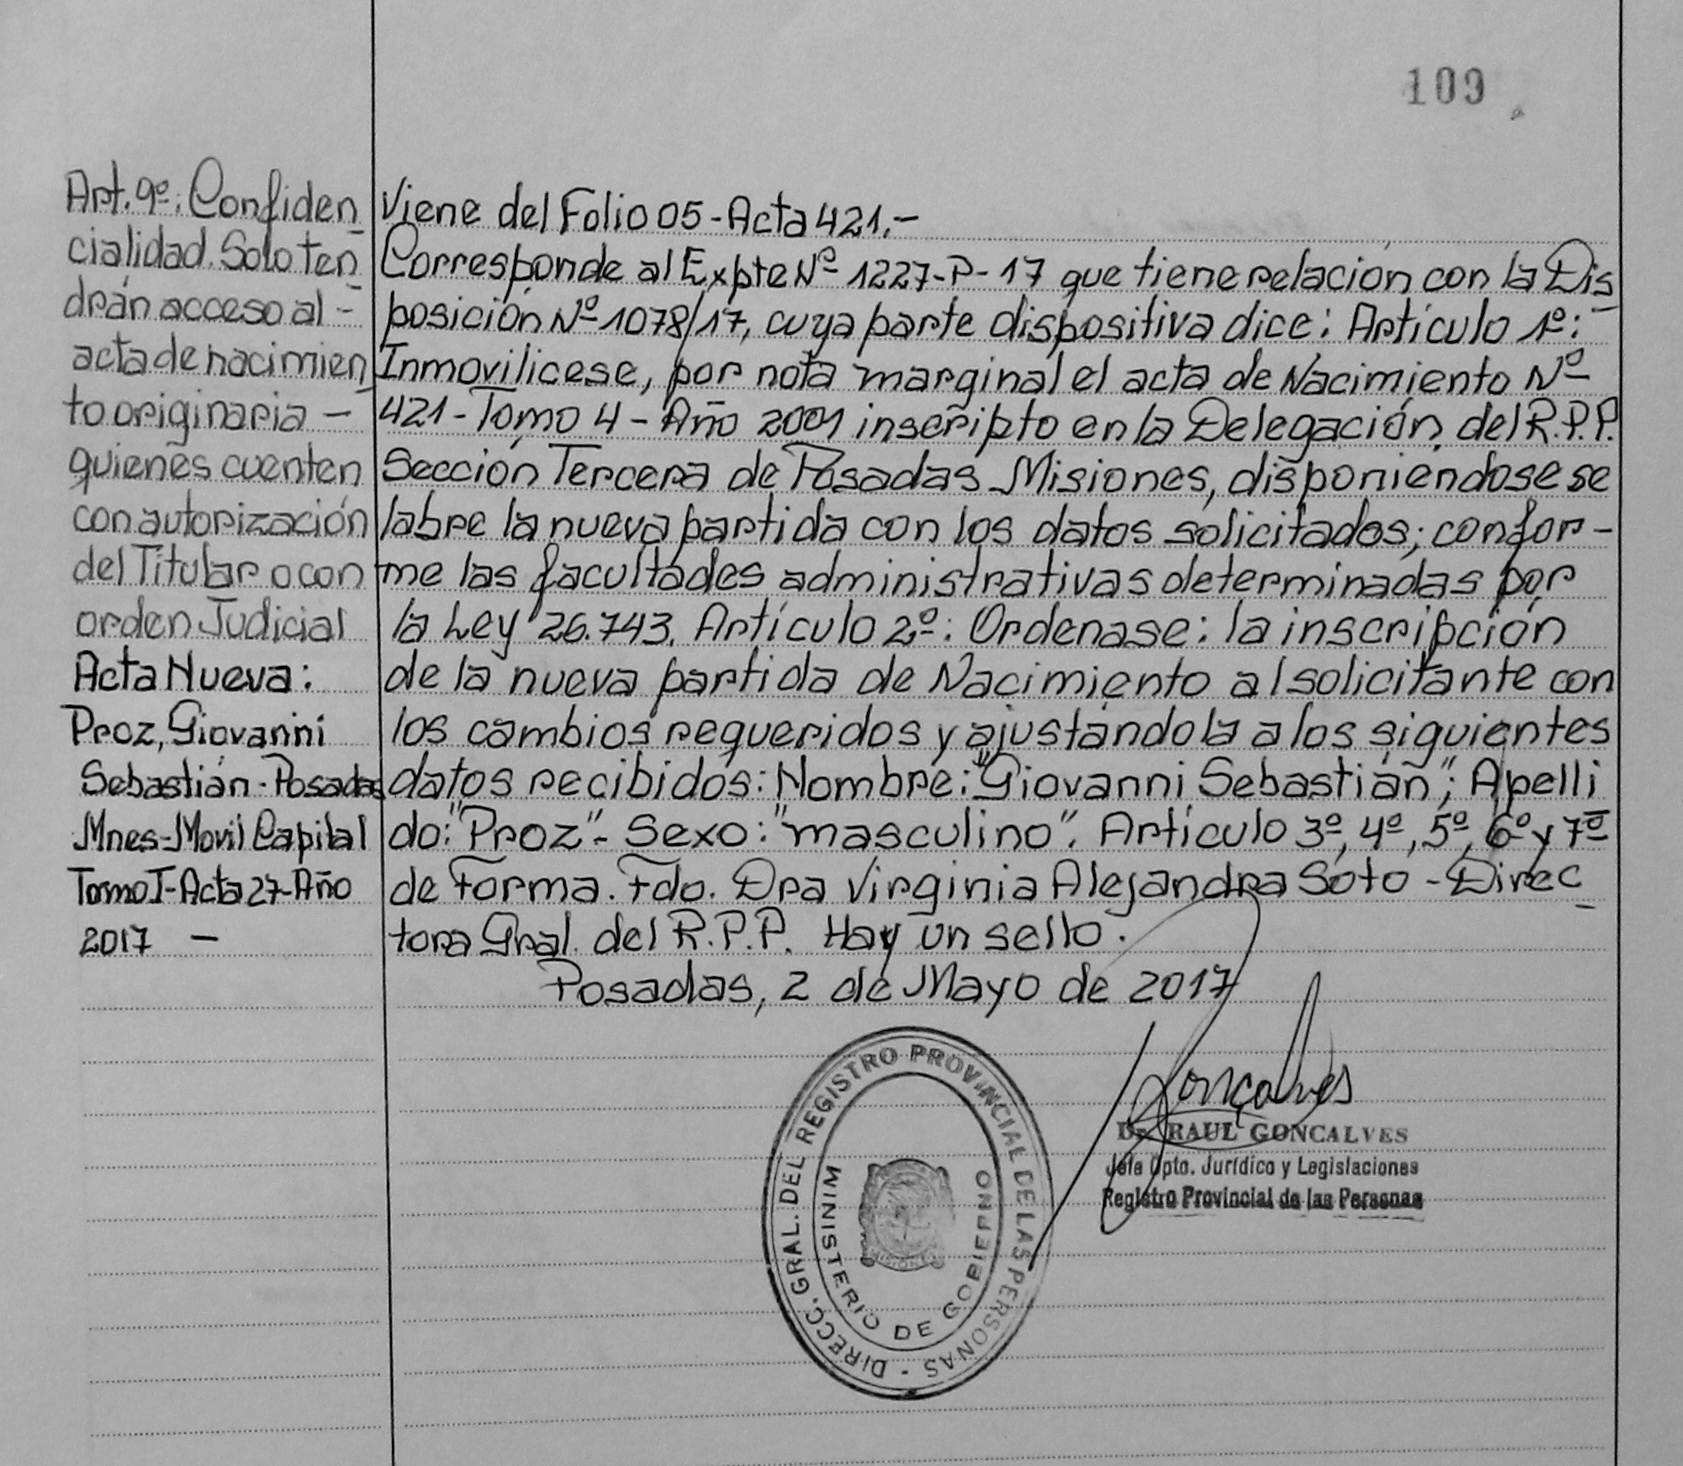 109
Art. 9º: Confiden
cialidad. Solo ten
drán acceso al -
acta de nacimien
to originaria -
quienes cuenten
con autorización
del Titular o con
orden Judicial
Acta Nueva:
Proz, Giovanni
Sebastián - Posadas
Mnes - Movil Capital
Tomo I - Acta 27 - Año
2017 -
Viene del Folio 05 - Acta 421.-
Corresponde al Expte Nº 1227-P-17 que tiene relación con la Dis
posición Nº 1078/17, cuya parte dispositiva dice: Artículo 1º:
Inmovilicese, por nota marginal el acta de Nacimiento Nº
421 - Tomo 4 - Año 2001 inscripto en la Delegación del R.P.P.
Sección Tercera de Posadas Misiones, disponiendose se
labre la nueva partida con los datos solicitados; confor-
me las facultades administrativas determinadas por
la Ley 26.743. Artículo 2º: Ordenase: la inscripción
de la nueva partida de Nacimiento al solicitante con
los cambios requeridos y ajustándola a los siguientes
datos recibidos: Nombre: "Giovanni Sebastián"; Apelli
do: "Proz" - Sexo: "masculino". Artículo 3º, 4º, 5º, 6º y 7º
de Forma. Fdo. Dra Virginia Alejandra Soto - Direc
tora Gral. del R.P.P. Hay un sello.
Posadas, 2 de Mayo de 2017
DIRECC. GRAL. DEL REGISTRO PROVINCIAL DE LAS PERSONAS -
MINISTERIO DE GOBIERNO
MISIONES
Goncalves
Dr. RAUL GONCALVES
Jefe Dpto. Jurídico y Legislaciones
Registro Provincial de las Personas